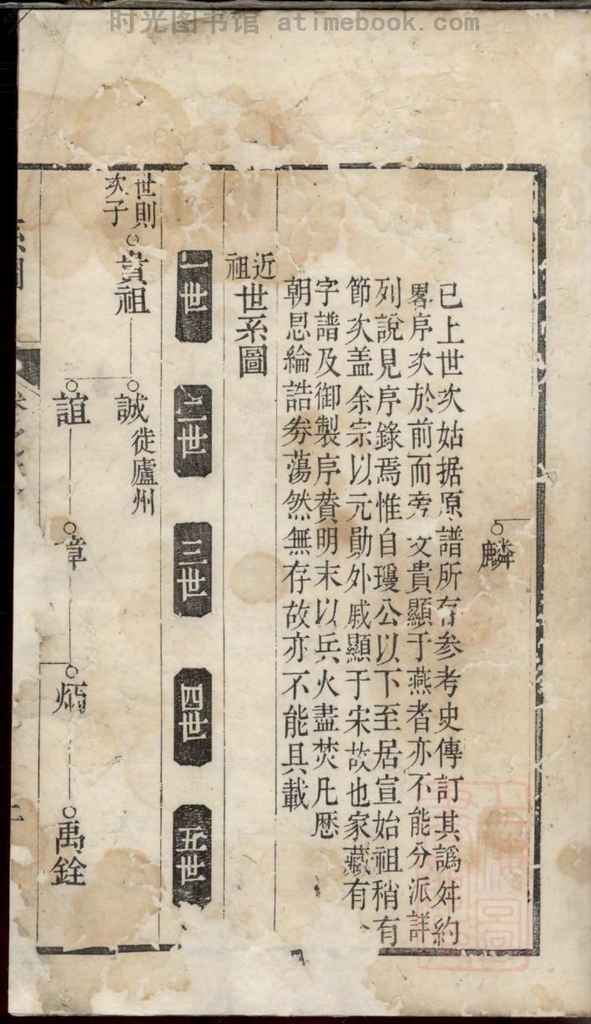 时光图书馆 atimebook.com
麟
已上世次姑据原譜所存参考史傳訂其譌舛約
畧序次於前而旁文貴顯于燕者亦不能分派詳
列說見序錄焉惟自瓊公以下至居宣始祖稍有
節次盖余宗以元勛外戚顯于宋故也家藏有
字譜及御製序賛明末以兵火盡焚凡歴
朝恩綸誥劵蕩然無存故亦不能具載
近祖世系圖
一世 二世 三世 四世 五世
世則次子 貴祖 誠 徙廬州
誼 章 炳 禹銓